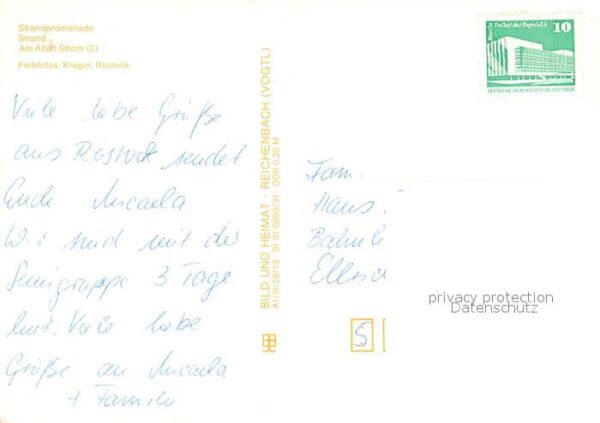 Strandpromenade
Strand
Am Alten Strom (2)
Farbfotos: Krüger, Rostock
Viele liebe Grüße
aus Rostock sendet
Euch Micaela
Wir sind mit der
3 Tage
hier. Viele liebe
Grüße an Micaela
+ Familie
BILD UND HEIMAT · REICHENBACH (VOGTL)
A1/III/26/13 01 01 0893/31 · DDR 0,20 M
Berlin Palast der Republik
10
DEUTSCHE DEMOKRATISCHE REPUBLIK
Fam.
Hans
Ellric
5
privacy protection
Datenschutz